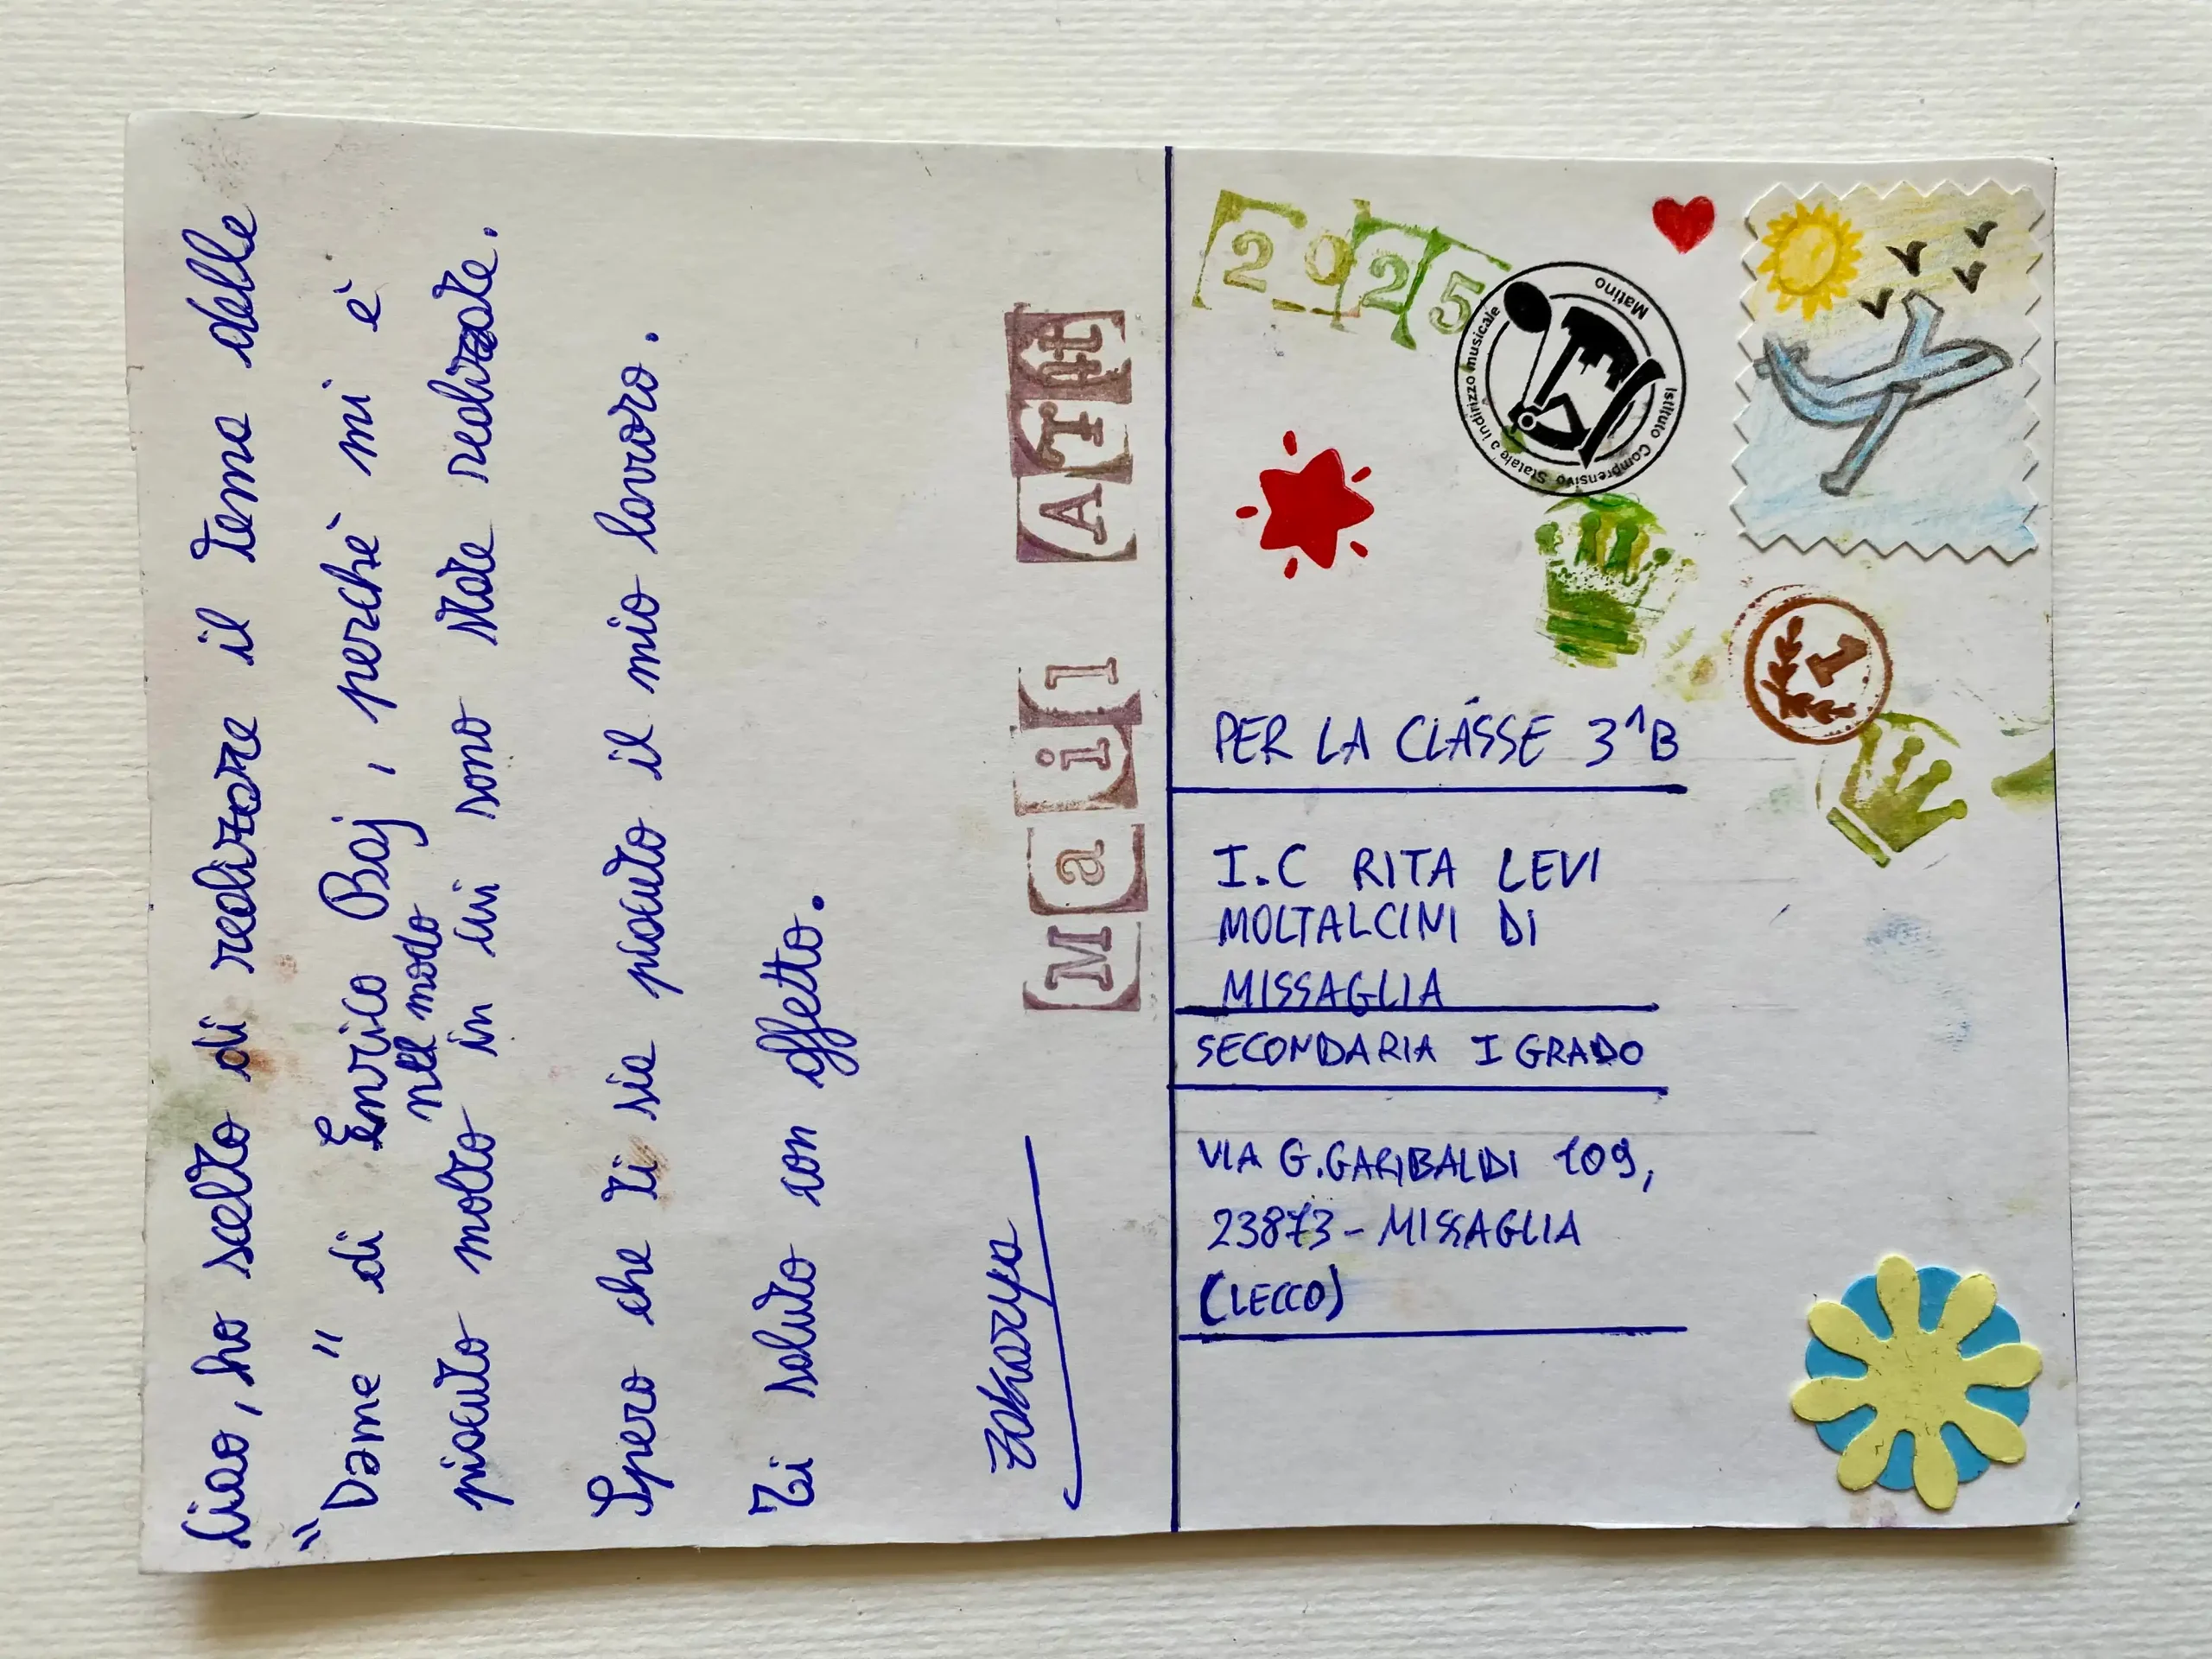 Ciao, ho scelto di realizzare il tema delle
"Dame" di Enrico Baj, perchè mi è
nel modo
piaciuto molto in cui sono state realizzate.
Spero che ti sia piaciuto il mio lavoro.
Ti saluto con affetto.
Zakarya
Mail ATtt
2025
Istituto Comprensivo Statale a indirizzo musicale
Matino
1
PER LA CLASSE 3^B
I.C RITA LEVI
MOLTALCINI DI
MISSAGLIA
SECONDARIA I GRADO
VIA G.GARIBALDI 109,
23873 - MISSAGLIA
(LECCO)